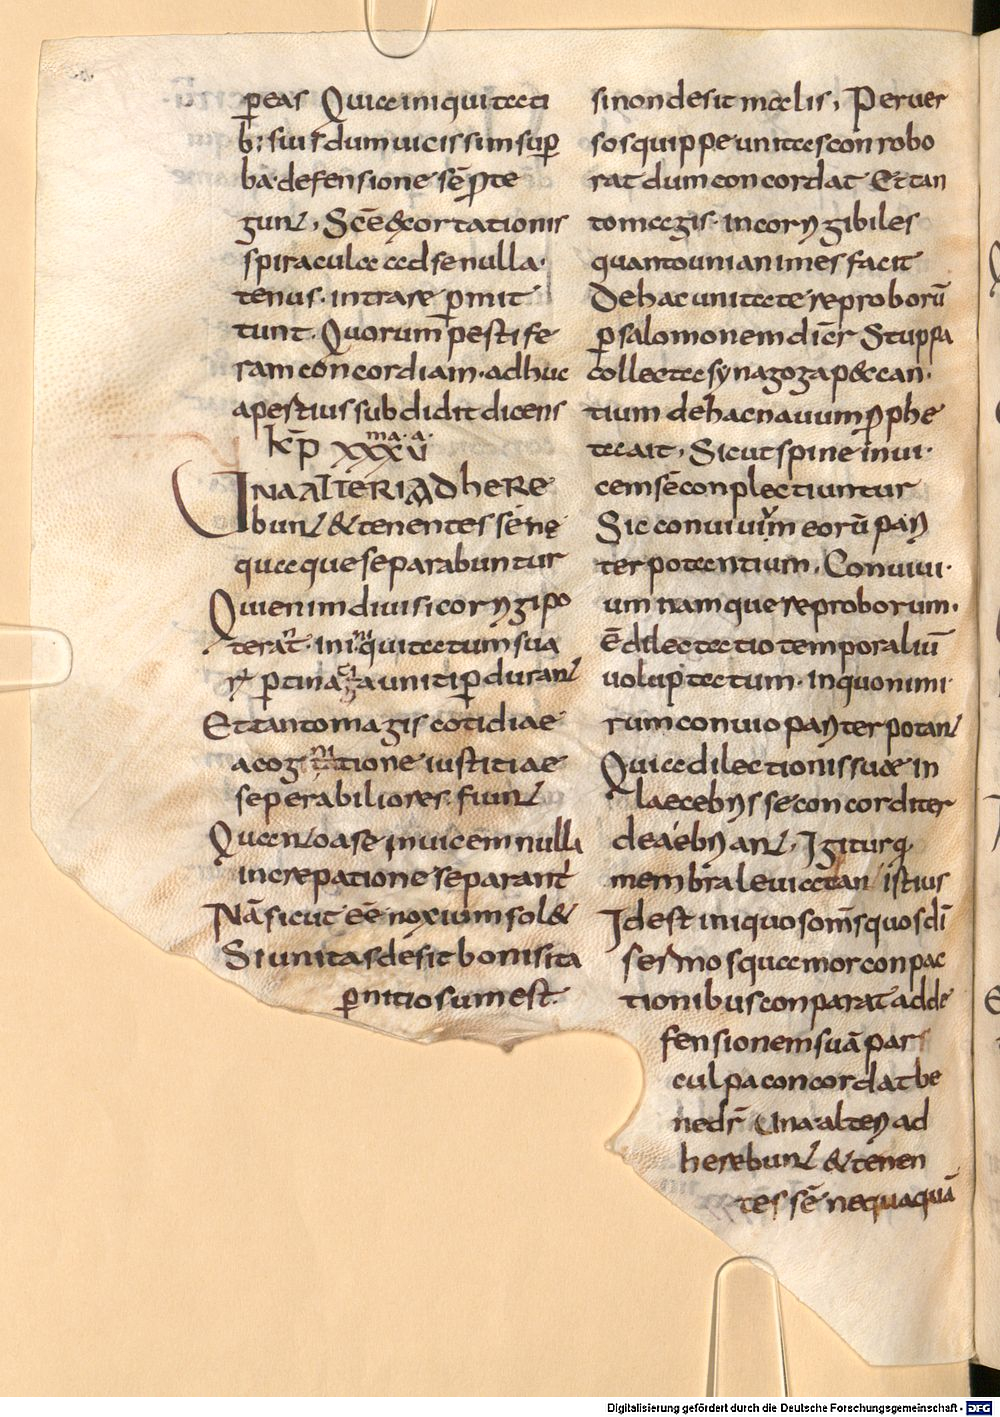 ꝑeas Quia iniquitati
b; suis dum uicissim suꝑ
ba defensione sē ꝓte
gunt, Scē exortationis
spiracula ad se nulla
tenus intrare ꝑmit
tunt. Quorum pestife
ram concordiam adhuc
apertius subdidit dicens
kp̄ xxxv
ma a
Una alteri adhere
bunt & tenentes se ne
quaque separabuntur
Qui enim diuisi corrigi po
terant iniquitatum sua
rum ꝑtinatia uniti ꝑdurant
Et tanto magis cotidiae
a cognitione iustitiae
seperabiliores fiunt
Quanto a se inuicem nulla
increpatione separant
Nā sicut eē noxium sol&
Si unitas desit bonis ita
ꝑnitiosum est.
si non desit malis, Peruer
sos quippe unitas conrobo
rat dum concordat Et tan
to magis incorrigibiles
quanto unianimes facit
De hac unitate reproborū
ꝑ salomonem dicr̄ Stuppa
collecta synagoga pecan
tium de hac nauum ꝓphe
ta ait, Sicut spine inui
cem sē conplectiuntur
Sic conuiuium eorū pari
ter potantium, Conuiui
um namque reproborum
ē dilectatio temporaliū
voluptatum in quo nimi
rum conuio pariter potant
Qui a dilectionis suae in
laecebris se concorditer
deaebriant, Igitur q;
membra leuiatan istius
Id est iniquos om̄s quos dī
sermo squamor conpac
tionibus conparat ad de
fensionem suā pars
culpa concordat be
ne dr̄ Una alteri ad
herebunt & tenen
tes sē nequaquā
Digitalisierung gefördert durch die Deutsche Forschungsgemeinschaft - DFG